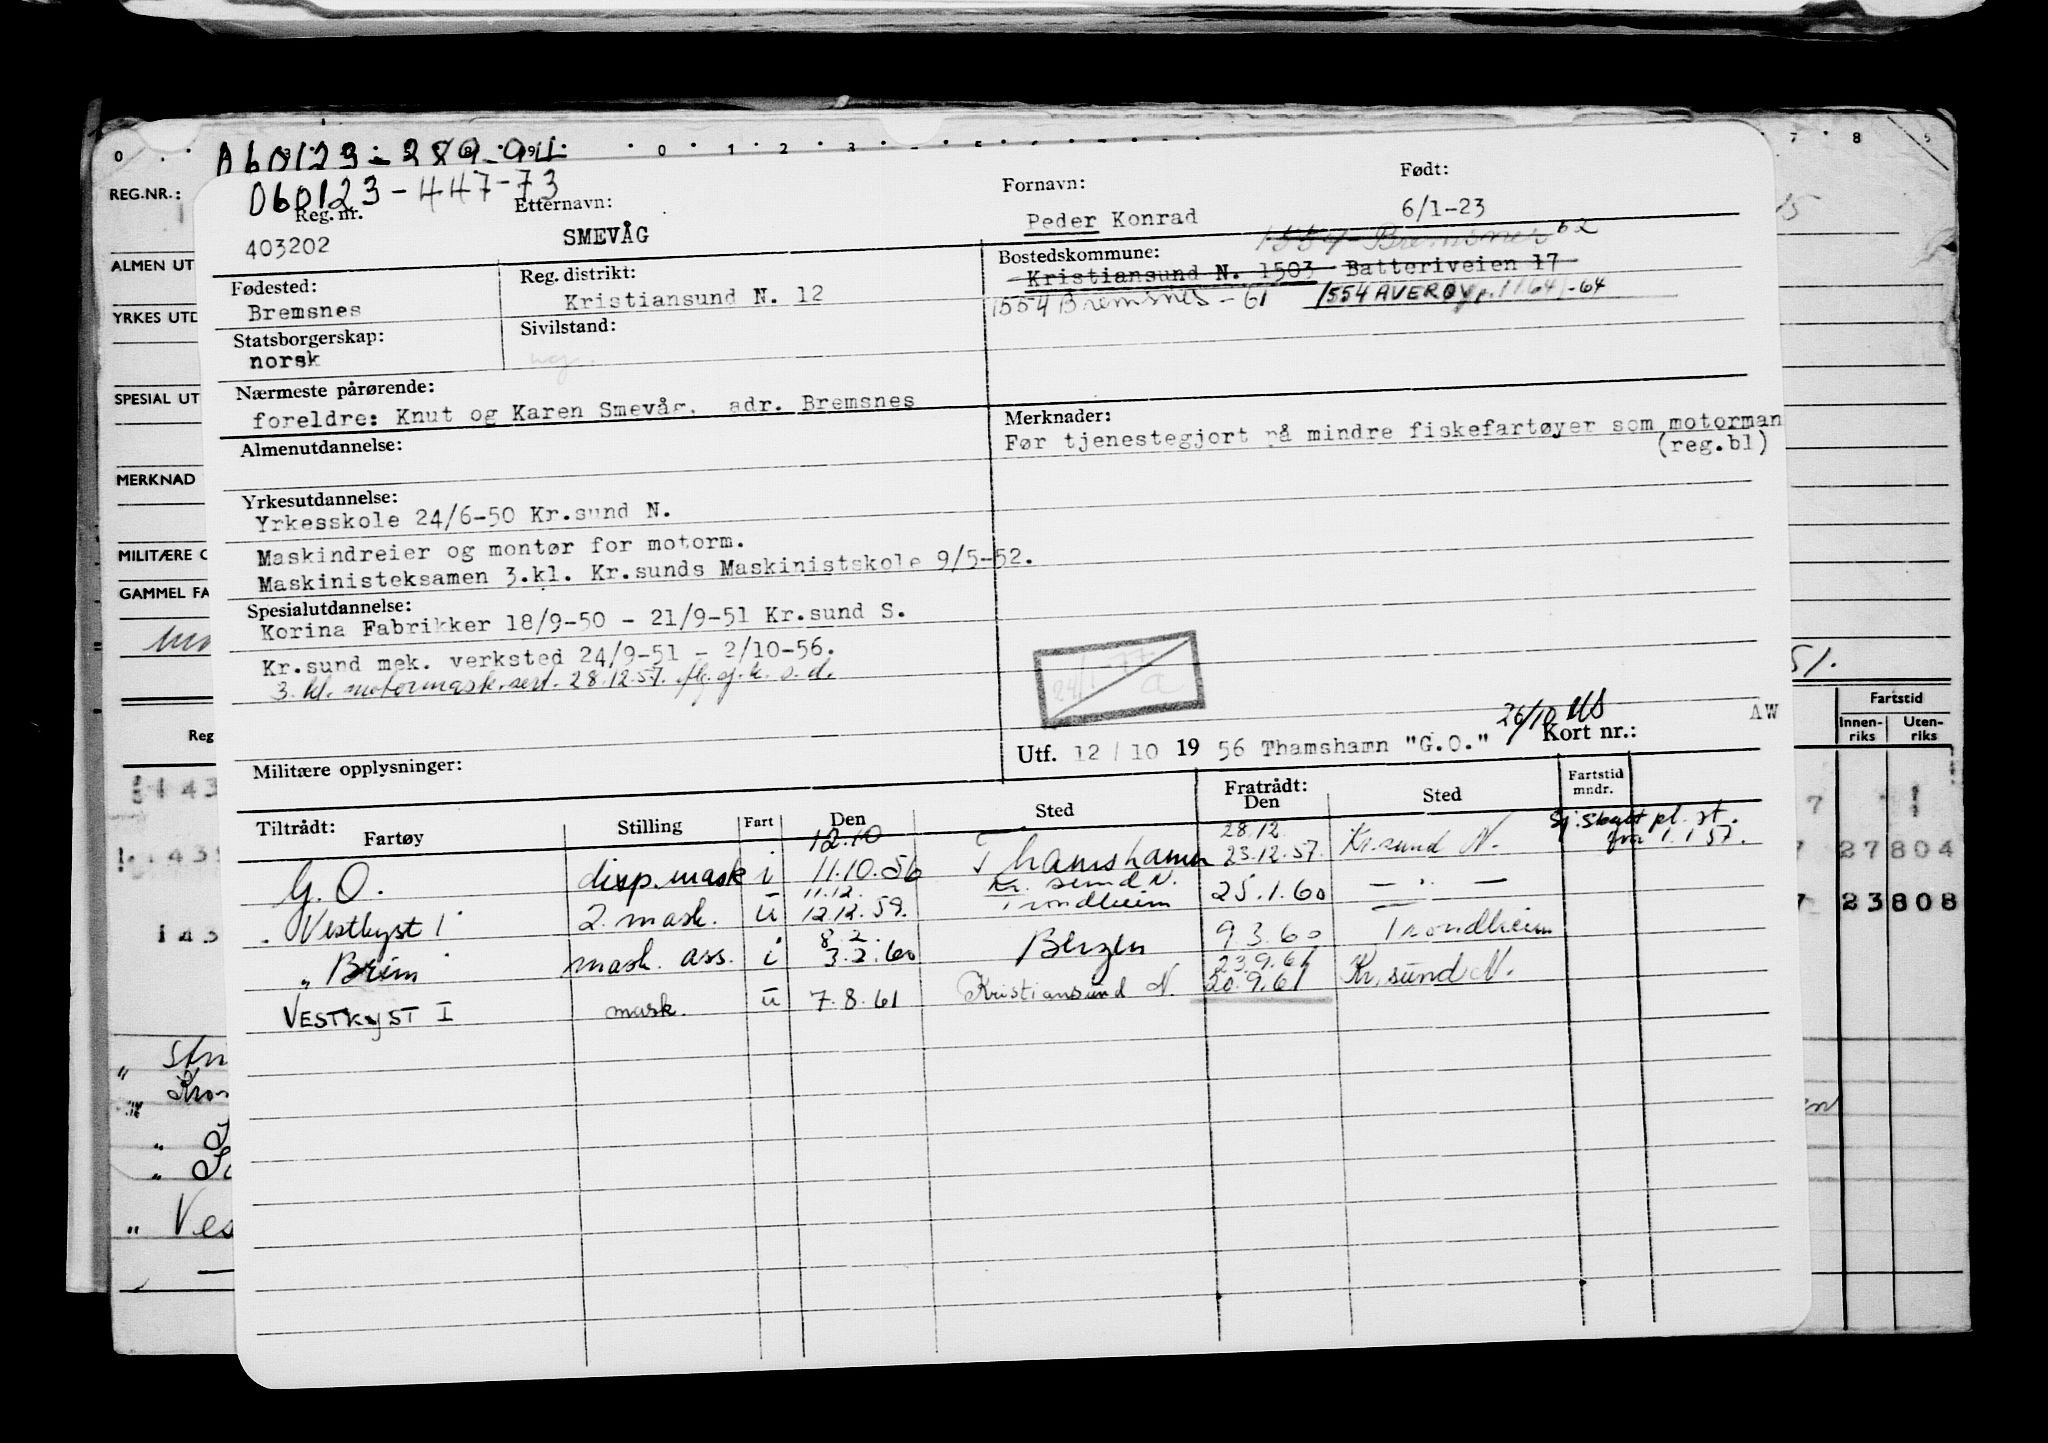 060123-289-94
REG.NR.:
060123-447-73
Reg. nr.
403202
Etternavn:
SMEVÅG
Fornavn:
Peder Konrad
Født:
6/1-23
ALMEN UT
Fødested:
Bremsnes
Reg. distrikt:
Kristiansund N. 12
Bostedskommune:
1554 Bremsnes 62
Kristiansund N. 1503 Batteriveien 17
1554 Bremsnes - 61 1554 AVERØY p. 1/1 64 -64
YRKES UTD
Statsborgerskap:
norsk
Sivilstand:
ug.
SPESIAL UT
Nærmeste pårørende:
foreldre: Knut og Karen Smevåg, adr. Bremsnes
Merknader:
Før tjenestegjort på mindre fiskefartøyer som motorman
(reg.bl)
Almenutdannelse:
MERKNAD
Yrkesutdannelse:
Yrkesskole 24/6-50 Kr.sund N.
Maskindreier og montør for motorm.
Maskinisteksamen 3.kl. Kr.sunds Maskinistskole 9/5-52.
MILITÆRE O
GAMMEL FA
Spesialutdannelse:
Korina Fabrikker 18/9-50 - 21/9-51 Kr.sund S.
Kr.sund mek. verksted 24/9-51 - 2/10-56.
3. kl. motormask.sert. 28.12.57. flg. sj.k. s.d.
24/1-77
a
26/10 US
Utf. 12/10 1956 Thamshamn "G.O." Kort nr.:
AW
Militære opplysninger:
Tiltrådt:
Fartøy Stilling Fart Den Sted
Fratrådt:
Den Sted
Fartstid
mndr.
Sj.skatt pl. st.
fra 1.1.57.
12.10 28.12.
G.O. disp. mask i 11.10.56 Thamshamn 23.12.57. Kr.sund N.
11.12. Kr. sund N.
" Vestkyst I 2. mask. u 12.12.59. Trondheim 25.1.60 — " —
8.2.
" Brim mask. ass. i 3.2.60 Bergen 9.3.60 Trondheim
23.9.61
VESTKYST I mask. u 7.8.61 Kristiansund N. 20.9.61 Kr.sund N.
Fartstid
Innen-
riks
Uten-
riks
27804
23808
Reg
143
" Ves